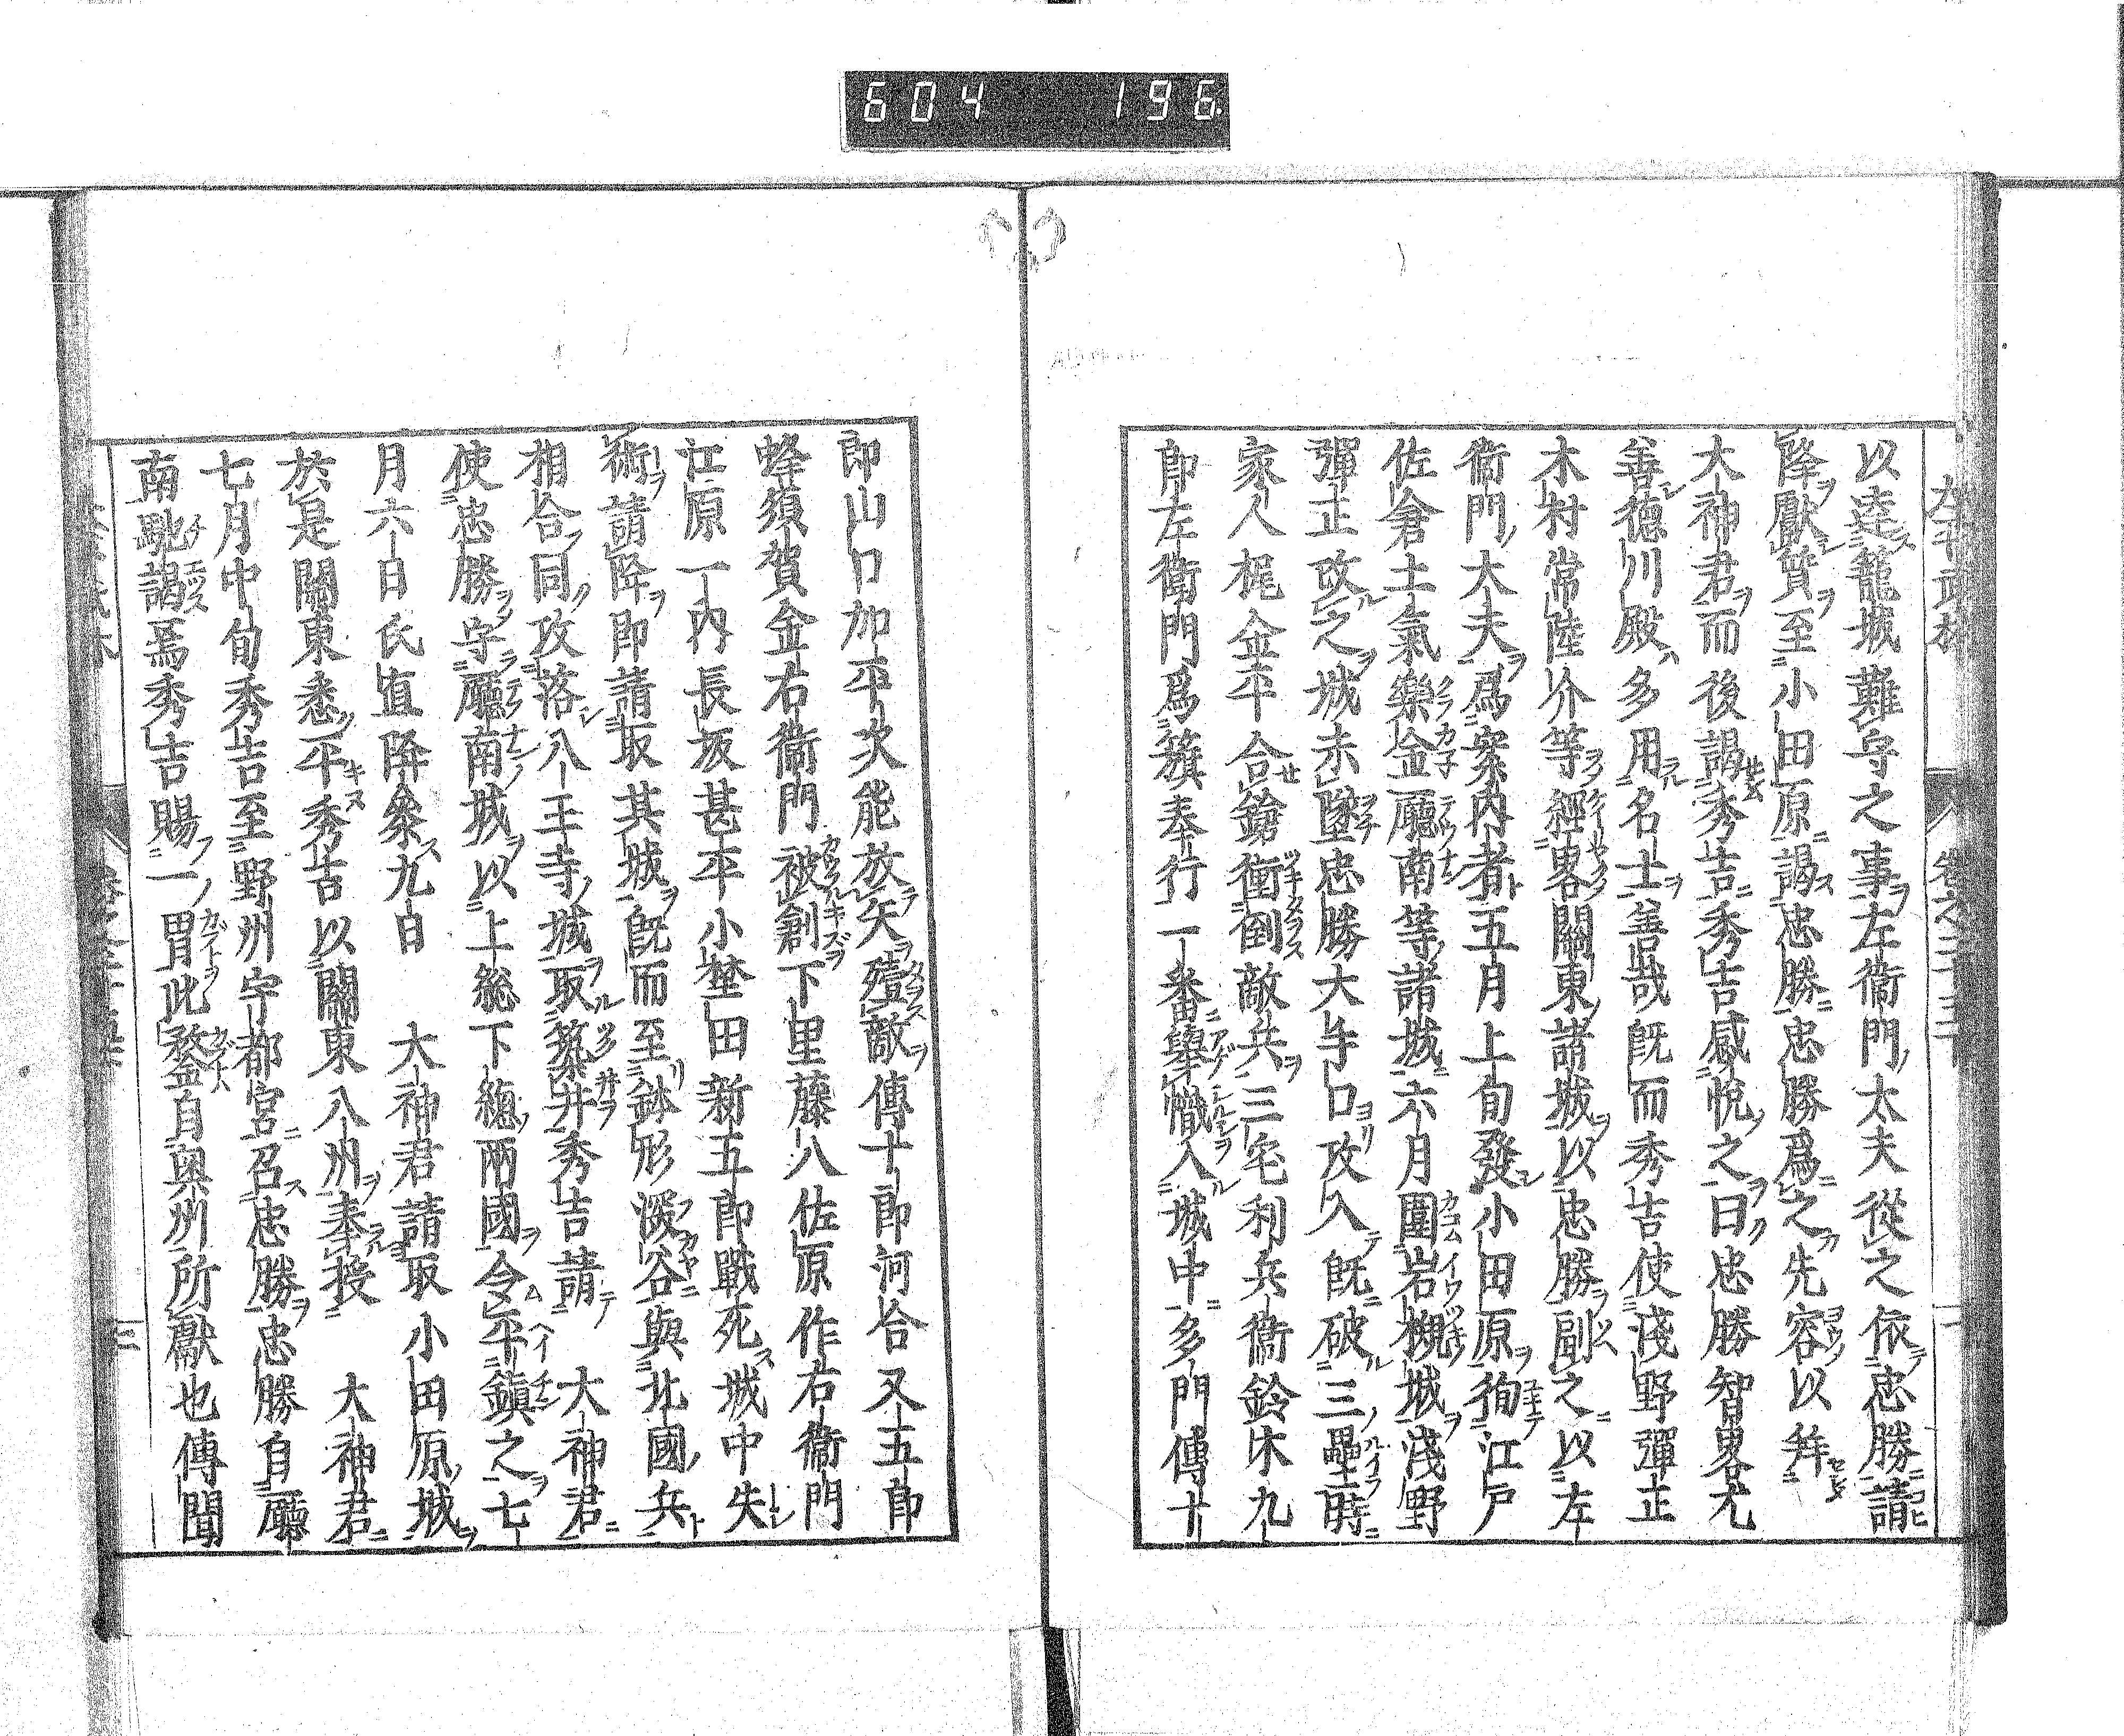 604 196
以逵籠城難守之事左衞門太夫從之依忠勝請
降獻質至小田原謁忠勝忠勝爲之先容以拜
大神君而後謁秀吉秀吉感悅之曰忠勝智畧尤
善德川殿多用名士善哉既而秀吉使淺野彈正
木村常陸介等經畧關東諸城以忠勝副之以左
衞門大夫爲案內者五月上旬發小田原徇江戸
佐倉土氣樂金廳南等諸城六月圍岩槻城淺野
彈正攻之城未墜忠勝大手口攻入既破三壘時
家人梶金平合鎗衝倒敵兵三宅利兵衞鈴木九
郎左衞門爲籏奉行一番舉幟入城中多門傳十
郎山口加平次能放矢殪敵傳十郎河合又五郎
蜂須賀金右衞門被創下里藤八佐原作右衞門
江原一內長坂甚平小埜田新五郎戰死城中失
術請降即請取其城既而至鉢形深谷與北國兵
相合同攻落八王寺城取築井秀吉請 大神君
使忠勝守廳南城以上總下總兩國令平鎭之七
月六日氏直降參九日 大神君請取小田原城
於是關東悉平秀吉以關東八州奉授 大神君
七月中旬秀吉至野州宇都宮召忠勝忠勝自廳
南馳謁焉秀吉賜一冑此鍪自奧州所獻也傳聞